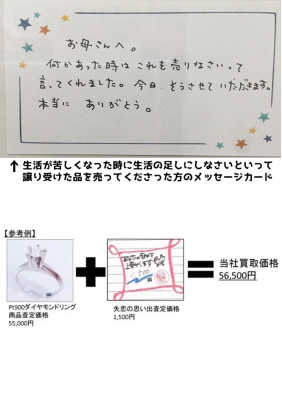 お母さんへ。
何かあった時はこれを売りなさいって
言ってくれました。今日、そうさせていただきます。
本当に ありがとう。
↑ 生活が苦しくなった時に生活の足しにしなさいといって
譲り受けた品を売ってくださった方のメッセージカード
【参考例】
Pt900ダイヤモンドリング
商品査定価格
55,000円
失恋の思い出査定価格
1,500円
当社買取価格
56,500円